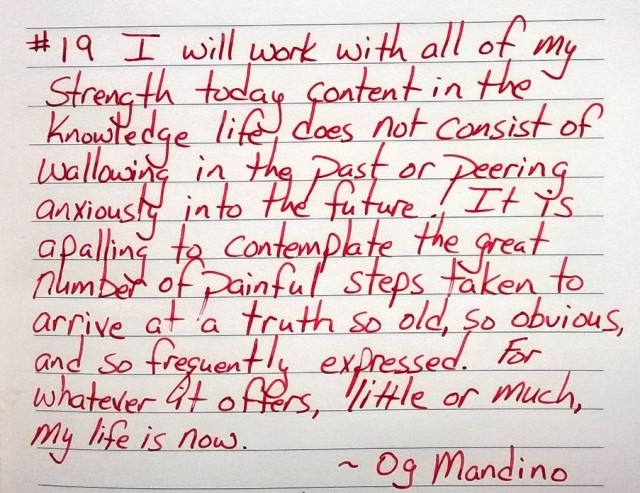 #19 I will work with all of my
Strength today content in the
Knowledge life does not consist of
wallowing in the past or peering
anxiously into the future! It is
apalling to contemplate the great
number of painful steps taken to
arrive at a truth so old, so obvious,
and so frequently expressed. For
whatever it offers, little or much,
my life is now.
~ Og Mandino